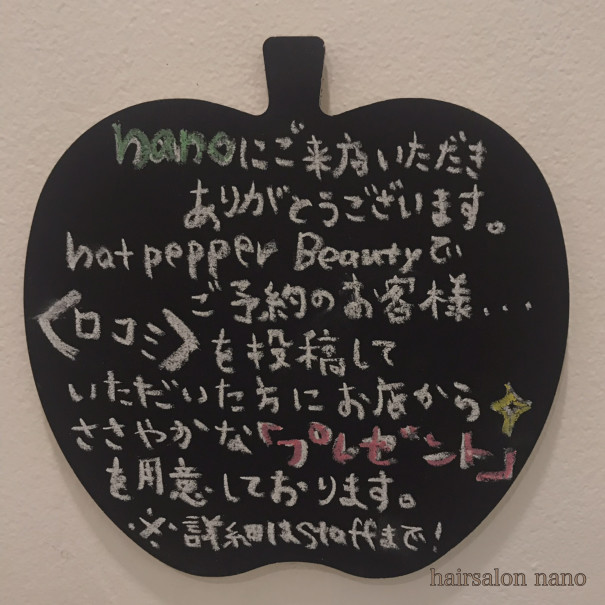 nanoにご来店いただき
ありがとうございます。
hotpepper Beautyで
ご予約のお客様...
〈口コミ〉を投稿して
いただいた方にお店から
ささやかな「プレゼント」
を用意しております。
※詳細はStaffまで!
hairsalon nano